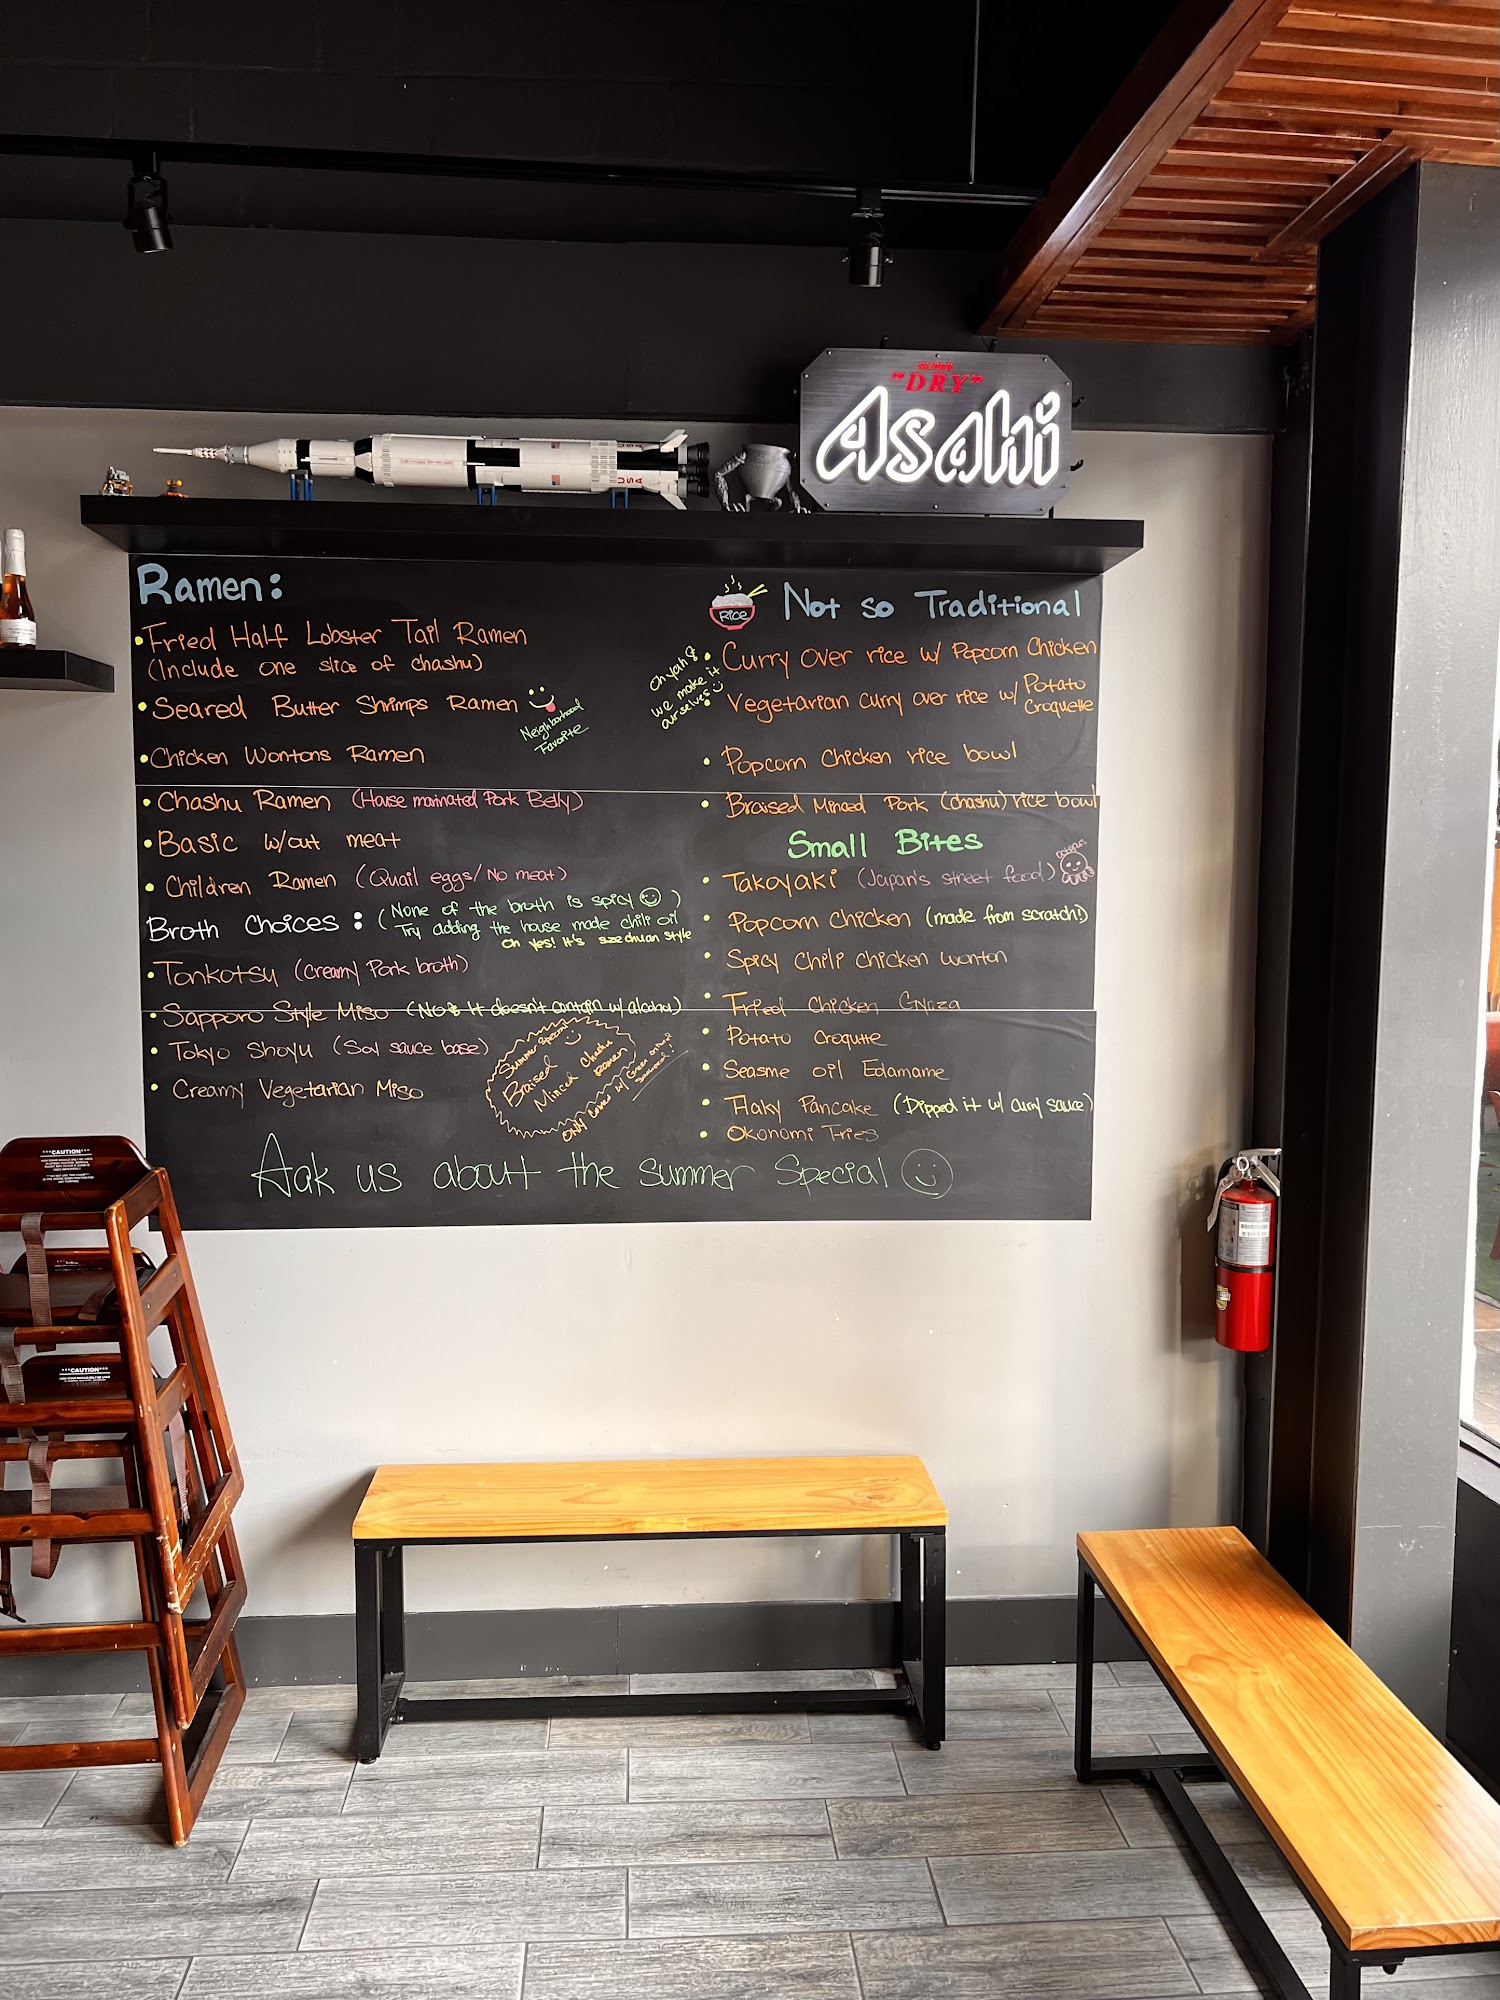 SUPER
"DRY"
Asahi
USA
Ramen:
• Fried Half Lobster Tail Ramen
(Include one slice of chashu)
• Seared Butter Shrimps Ramen
Neighborhood
Favorite
• Chicken Wontons Ramen
• Chashu Ramen (House marinated Pork Belly)
• Basic w/out meat
• Children Ramen (Quail eggs/No meat)
Broth Choices: (None of the broth is spicy )
Try adding the house made chili oil
Oh yes! It's szechuan style
• Tonkotsu (Creamy Pork broth)
• Sapporo Style Miso (No& It doesn't contain w/ alcohu)
• Tokyo Shoyu (Soy sauce base)
• Creamy Vegetarian Miso
Summer Special
Braised
Minced Chashu
Ramen
Only Comes w/ Green onion &
Seaweed!
Rice
Not so Traditional
Oh yah &
we make it
ourselves
• Curry over rice w/ Popcorn Chicken
• Vegetarian curry over rice w/ Potato
Croquette
• Popcorn Chicken rice bowl
• Braised Minced Pork (chashu) rice bowl
Small Bites
• Takoyaki (Japan's street food)
octopus
• Popcorn Chicken (made from scratch!)
• Spicy Chili Chicken wonton
• Fried Chicken Gyoza
• Potato Croqutte
• Seasme oil Edamame
• Flaky Pancake (Dipped it w/ curry sauce)
• Okonomi Fries
Ask us about the summer Special
***CAUTION***
***CAUTION***